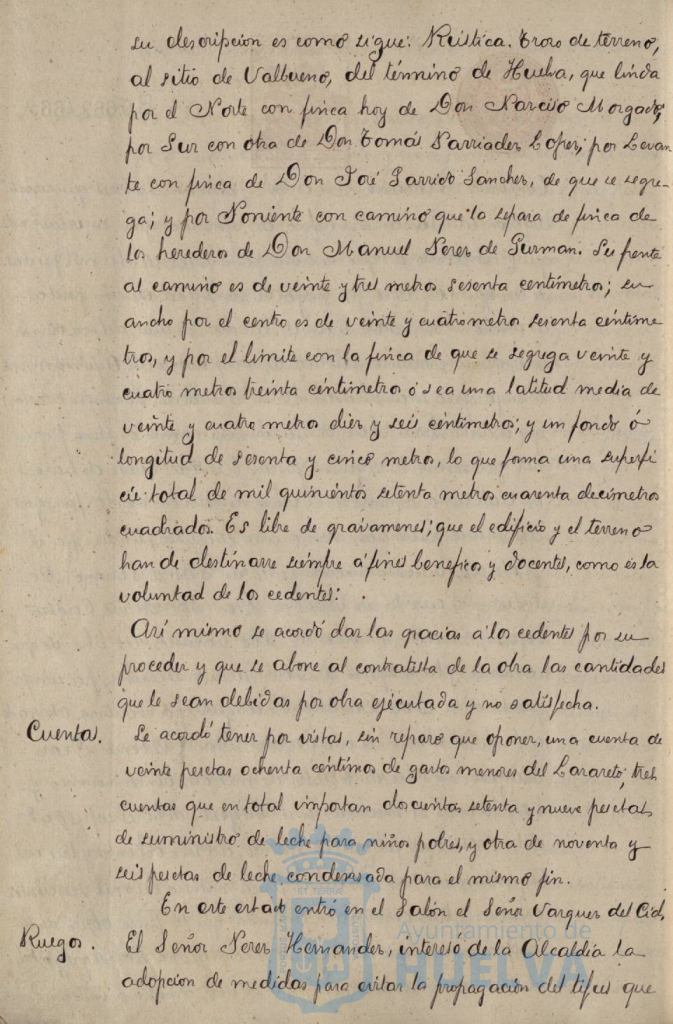 su descripcion es como sigue: Rústica. Trozo de terreno,
al sitio de Valbueno, del término de Huelva, que linda
por el Norte con finca hoy de Don Narciso Morgado,
por Sur con otra de Don Tomás Barriades Lopez; por Levan
te con finca de Don José Garrido Sanchez, de que se segre-
ga; y por Poniente con camino que la separa de finca de
los herederos de Don Manuel Perez de Guzman. Su frente
al camino es de veinte y tres metros sesenta centímetros; su
ancho por el centro es de veinte y cuatro metros sesenta céntime
tros, y por el límite con la finca de que se segrega veinte y
cuatro metros treinta céntimetros ó sea una latitud media de
veinte y cuatro metros diez y seis céntimetros; y un fondo ó
longitud de sesenta y cinco metros, lo que forma una superfi
cie total de mil quinientos setenta metros cuarenta decimetros
cuadrados. Es libre de gravamenes; que el edificio y el terreno
han de destinarse siempre á fines beneficos y docentes, como es la
voluntad de los cedentes:
Asi mismo se acordó dar las gracias a los cedentes por su
proceder y que se abone al contratista de la obra las cantidades
que le sean debidas por obra ejecutada y no satisfecha.
Cuentas. Se acordó tener por vistas, sin reparo que oponer, una cuenta de
veinte pesetas ochenta céntimos de gastos menores del Lazareto; tres
cuentas que en total importan doscientas setenta y nueve pesetas
de suministro de leche para niños pobres, y otra de noventa y
seis pesetas de leche condensada para el mismo fin.
En este estado entró en el Salón el Señor Vazquez del Cid.
Ruegos. El Señor Perez Hernandez, interesó de la Alcaldía la
adopcion de medidas para evitar la propagación del tifus que
Ayuntamiento de
HUELVA